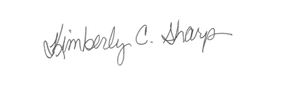 Kimberly C. Sharp